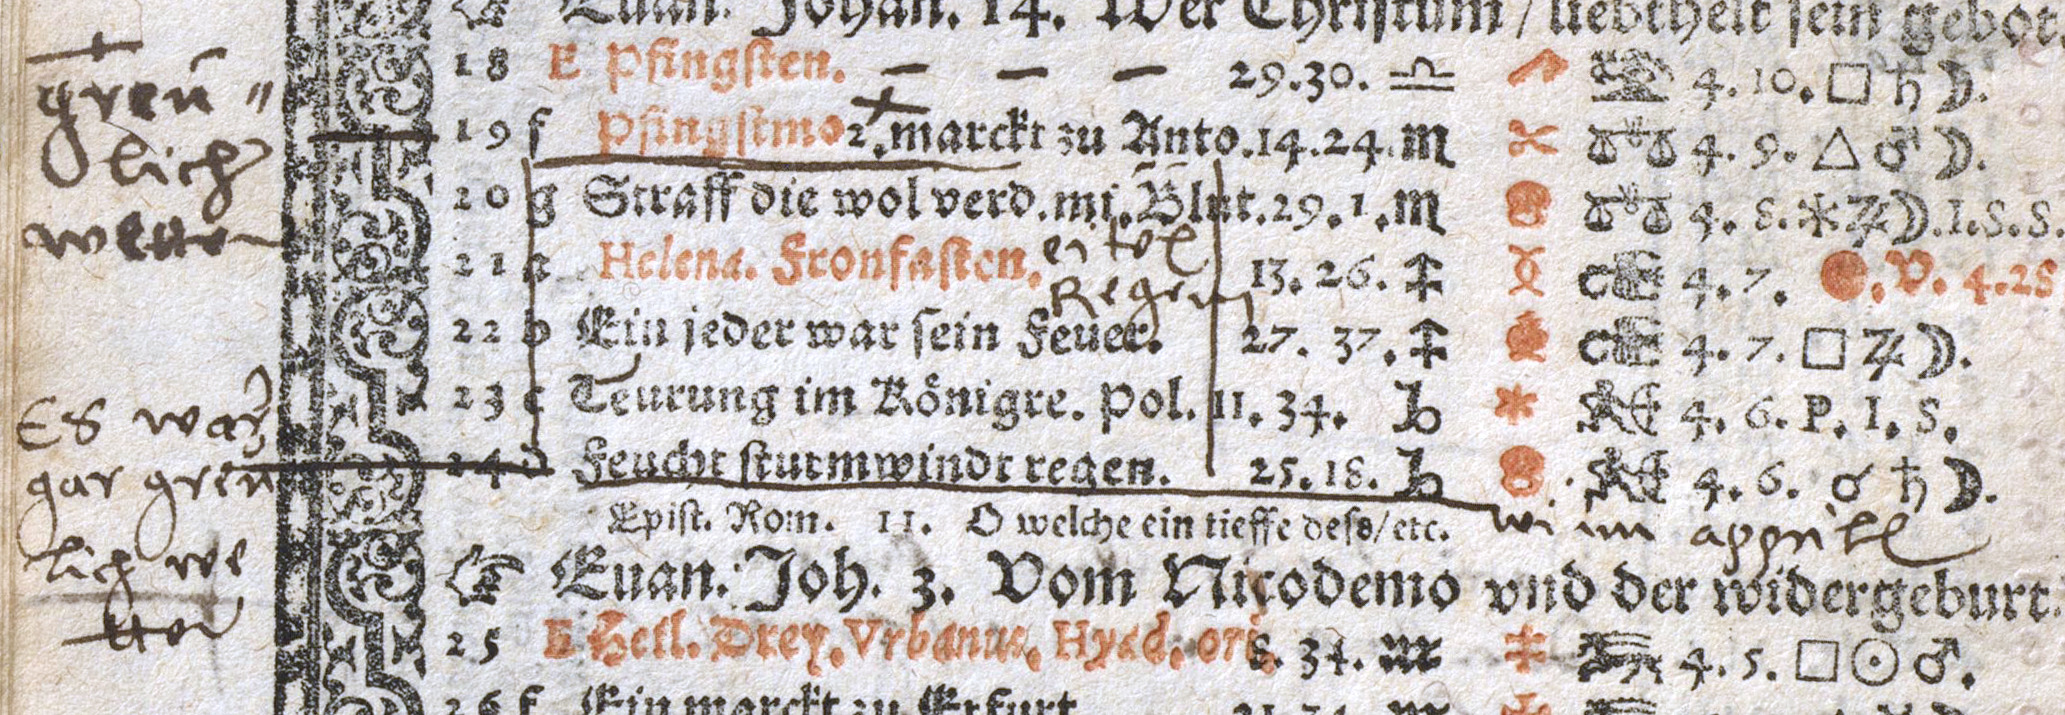 Euan. Johan. 14. Wer Christum / liebthelt sein gebot.
18 E Pfingsten. — — — 29.30. ♎ 4. 10. □ ♄ ☽.
19 f Pfingstmo2. marckt zu Anto. 14.24. ♏ 4. 9. △ ♂ ☽.
20 g Straff die wol verd. mi. Blut. 29. 1. ♏ 4. 8. ✶ ♃ ☽. I. S. S.
21 a Helena. Fronfasten. 13. 26. ♐ 4. 7. V. 4.28
22 b Ein jeder war sein Feuer. 27. 37. ♐ 4. 7. □ ♃ ☽.
23 c Teurung im Königre. Pol. 11. 34. ♑ 4. 6. P. I. S.
24 d Feucht sturmwindt regen. 25. 18. ♑ 4. 6. ☌ ♄ ☽.
Epist. Rom. 11. O welche ein tieffe dess / etc.
Euan. Joh. 3. Vom Nicodemo vnd der widergeburt.
25 E Heil. Drey. Vrbanus. Hyad. ori. 8. 34. ♒ 4. 5. □ ☉ ♂.
26 f Ein marckt zu Erfurt
greu̅ "
lich
wetter
eitel
Regen
Es war
gar greu
lich we
tter
wi im apprill